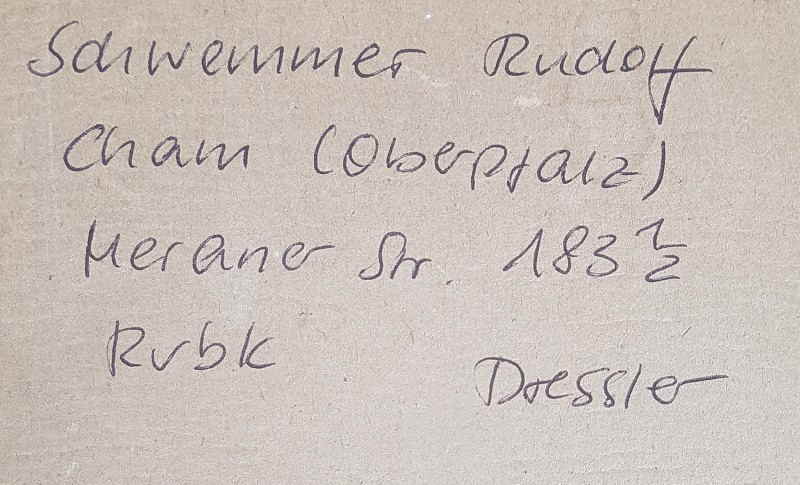 Schwemmer Rudolf
Cham (Oberpfalz)
Meraner Str. 183 1/2
Rvbk
Dressler